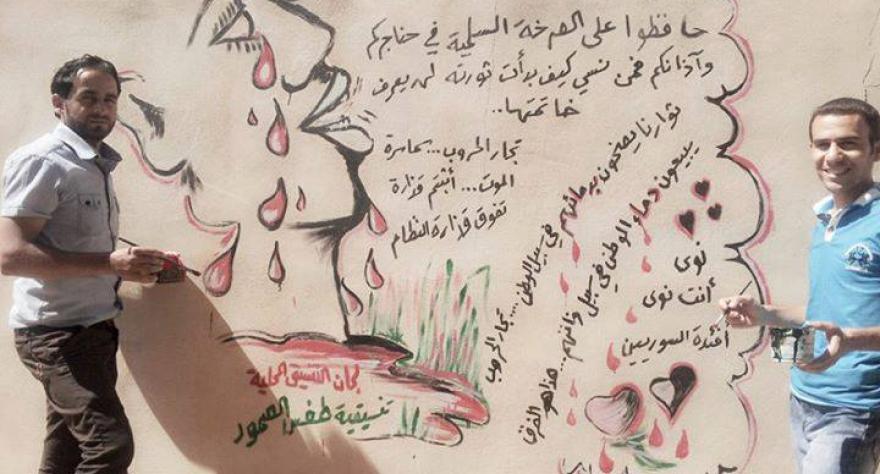 حافظوا على الصرخة السلمية في حناجركم
وآذانكم فمن نسي كيف بدأت ثورته لن يعرف
خاتمتها..
تجار الحروب... سماسرة
الموت... أثبتم قذارة
تفوق قذارة النظام
ثوارنا يضحون بدمائهم في سبيل الوطن... تجار الحروب
يبيعون دماء الوطن في سبيل ذاتهم... هذا هو الفرق
نوى
أنت نوى
أفئدة السوريين
لجان التنسيق المحلية
تنسيقية طفس الصمود